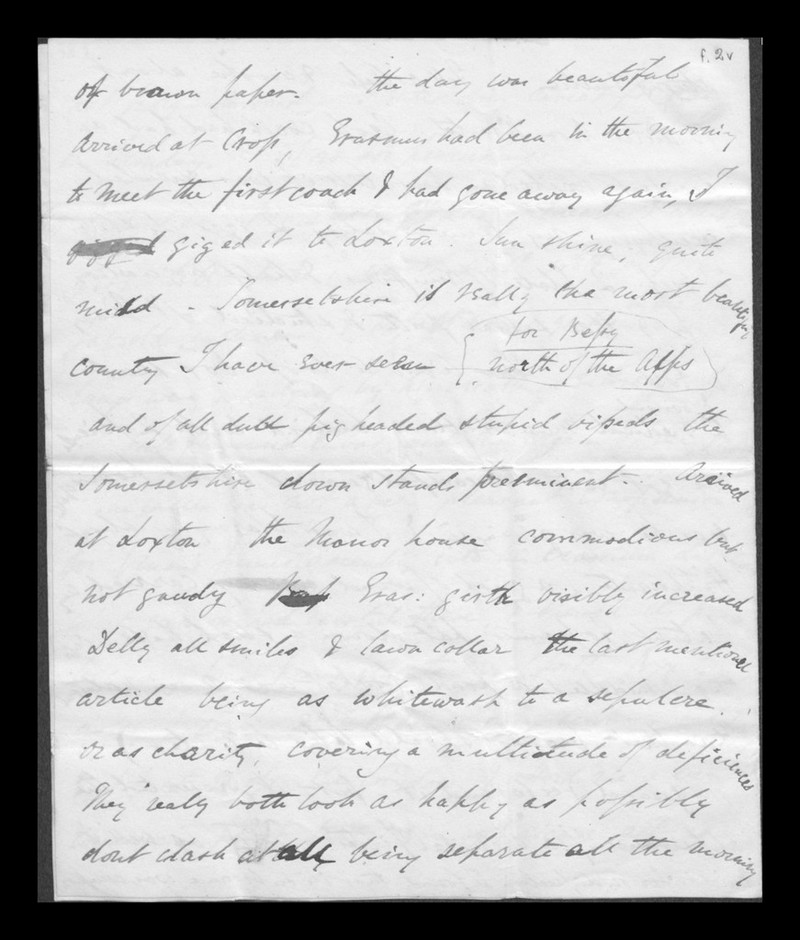 f. 2v
of brown paper. the day was beautiful
arrived at Cross, Erasmus had been in the morning
to meet the first coach & had gone away again, I
giged it to Loxton. Sun shine, quite
mild - Somersetshire is really the most beautiful
for Bessy
county I have ever seen { north of the Alps )
and of all dull pigheaded stupid bipeds the
Somersetshire clown stands preeminent. Arrived
at Loxton the Manor house commodious but
not gaudy Eras: girth visibly increased
Delly all smiles & lawn collar the last mentioned
article being as whitewash to a sepulcre.
or as charity, covering a multitude of deficiences
They realy both look as happy as possibly
dont clash at all being separate all the morning